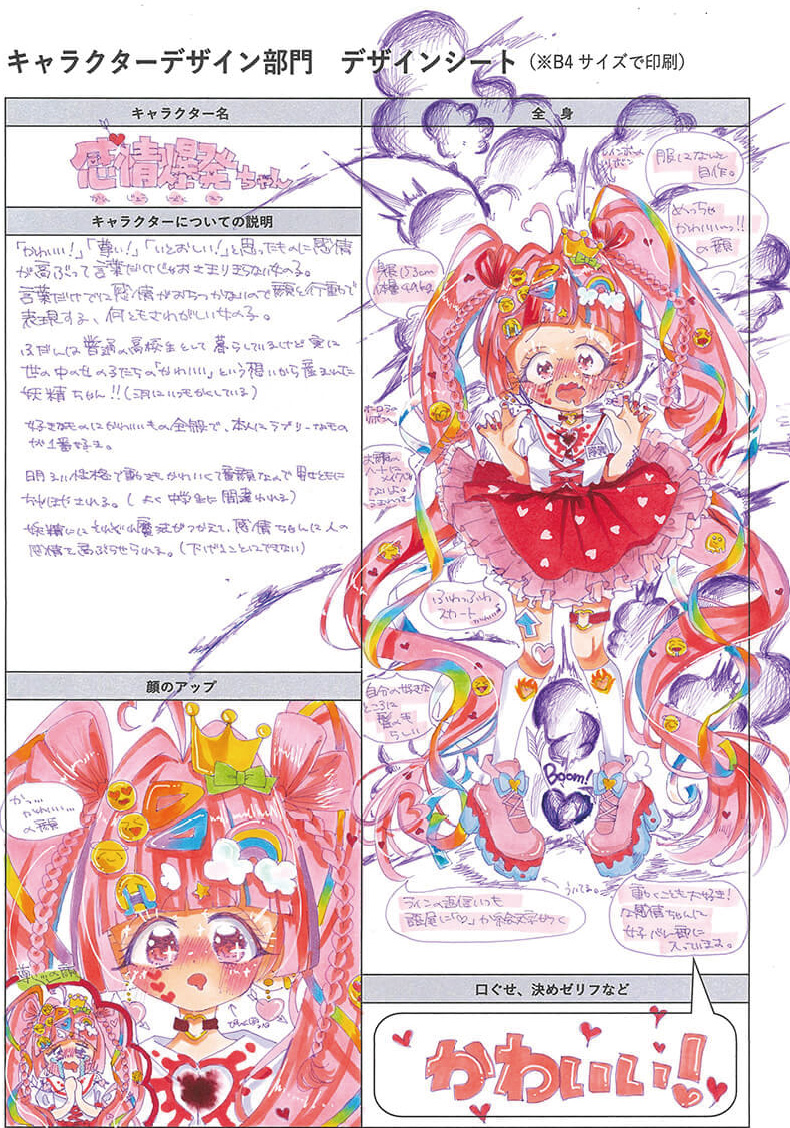 キャラクターデザイン部門　デザインシート（※B4サイズで印刷）
キャラクター名
感情爆発ちゃん
キャラクターについての説明
「かわいい!」「尊い!」「いとおしい!」と思ったものに感情
が高ぶって言葉だけじゃおさまりきらない女の子。
言葉だけでは感情がおちつかないので顔と行動で
表現する、何ともさわがしい女の子。
ふだんは普通の高校生として暮らしているけど実は
世の中の女の子たちの「かわいい」という想いから産まれた
妖精ちゃん!!
好きなものはかわいいもの全般で、本人はラブリーなもの
が1番好き。
明るい性格で動きもかわいくて童顔なので男女ともに
ちやほやされる。(よく中学生に間違われる)
妖精にはそれぞれ魔法がつかえて、感情ちゃんは人の
感情を高ぶらせられる。(下げることはできない)
顔のアップ
かっ…
かわいい…
の顔
尊いの顔
全　身
レインボー
リボン
服はなんと
自作。
めっちゃ
かわいいっ!!
の顔
身長153cm
体重49kg
ふわっふわ
スカート
自分の好きな
ところに
Boom!
ういてる。
ラインの返信いつも
語尾に「♡」か絵文字がつく
動くことも大好き!
な感情ちゃんは
女子バレー部に
入っています。
口ぐせ、決めゼリフなど
かわいい!